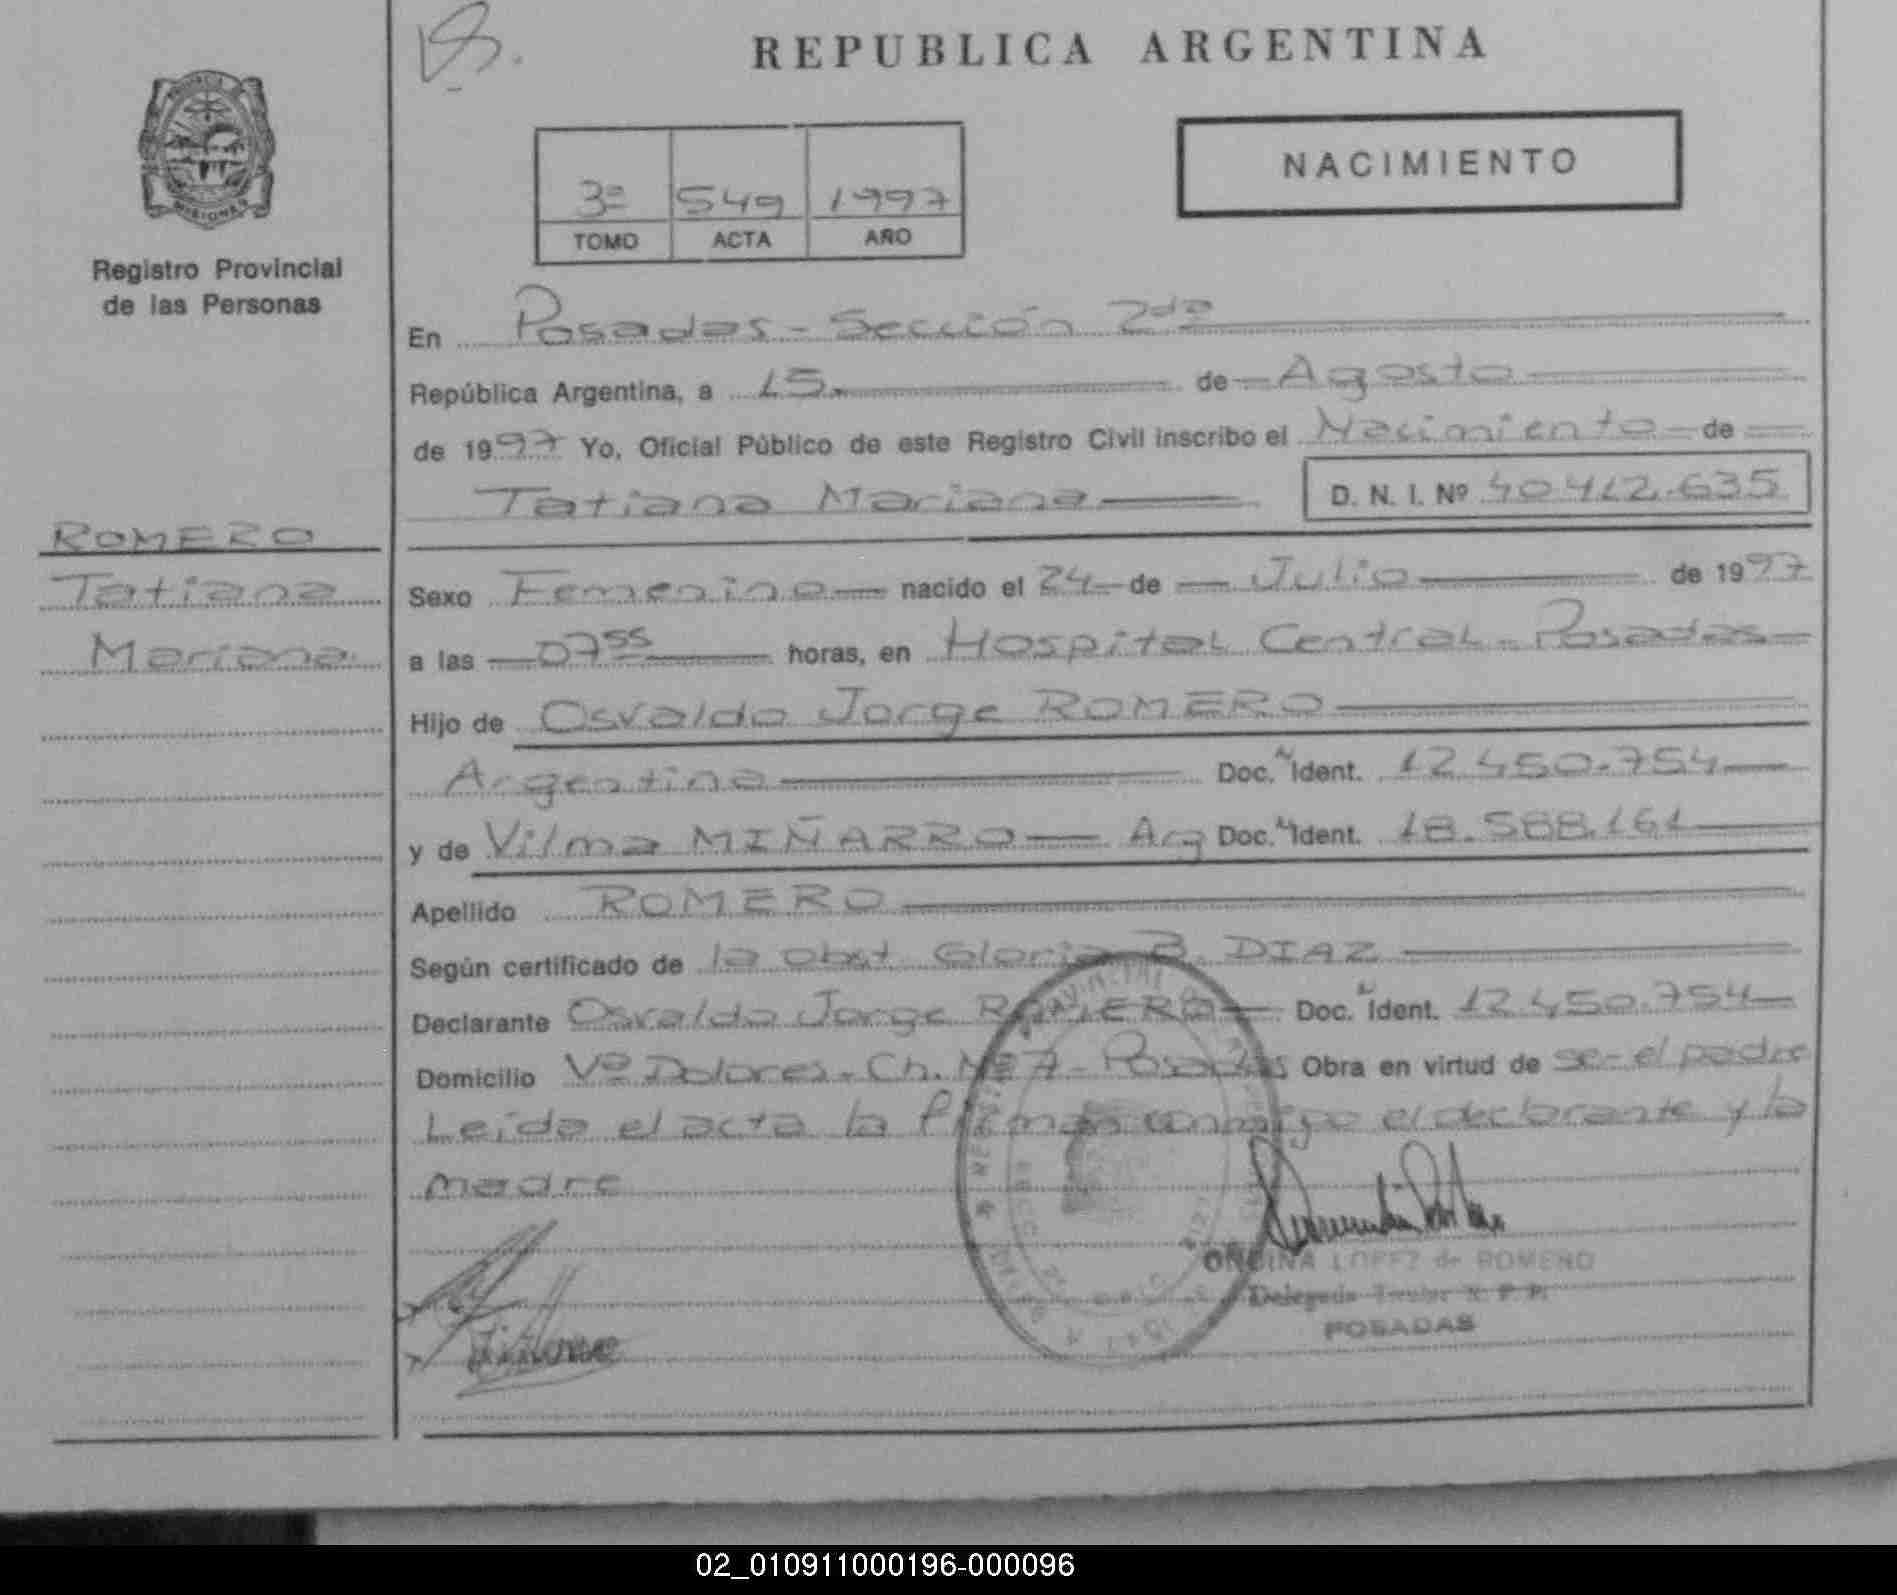 REPUBLICA ARGENTINA
NACIMIENTO
3º 549 1997
TOMO ACTA AÑO
MISIONES
Registro Provincial
de las Personas
ROMERO
Tatiana
Mariana
En Posadas - Sección 2da
República Argentina, a 15 de Agosto
de 1997 Yo, Oficial Público de este Registro Civil inscribo el Nacimiento de
Tatiana Mariana D. N. I. Nº 40.412.635
Sexo Femenino nacido el 24 de Julio de 1997
a las 07 55 horas, en Hospital Central - Posadas
Hijo de Osvaldo Jorge ROMERO
Argentino Doc. Ident. 12.450.754
y de Vilma MIÑARRO Arg Doc. Ident. 18.588.161
Apellido ROMERO
Según certificado de la obst. Gloria B. DIAZ
Declarante Osvaldo Jorge ROMERO Doc. Ident. 12.450.754
Domicilio Vº Dolores - Ch. Nº 7 - Posadas Obra en virtud de ser el padre
Leída el acta la firman conmigo el declarante y la
madre
ONDINA LOPEZ de ROMERO
Delegada Titular R. P. P.
POSADAS
02_010911000196-000096